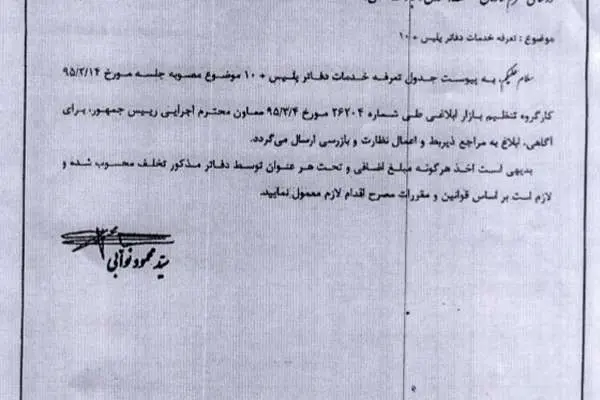 موضوع : تعرفه خدمات دفاتر پلیس + ۱۰
سلام علیکم، به پیوست جدول تعرفه خدمات دفاتر پلیس + ۱۰ موضوع مصوبه جلسه مورخ ۹۵/۲/۱۴
کارگروه تنظیم بازار ابلاغی طی شماره ۲۶۲۰۴ مورخ ۹۵/۳/۴ معاون محترم اجرایی رییس جمهور، برای
آگاهی، ابلاغ به مراجع ذیربط و اعمال نظارت و بازرسی ارسال می‌گردد.
بدیهی است اخذ هرگونه مبلغ اضافی و تحت هر عنوان توسط دفاتر مذکور تخلف محسوب شده و
لازم است بر اساس قوانین و مقررات مصرح اقدام لازم معمول نمایید.
سید محمود نوابی